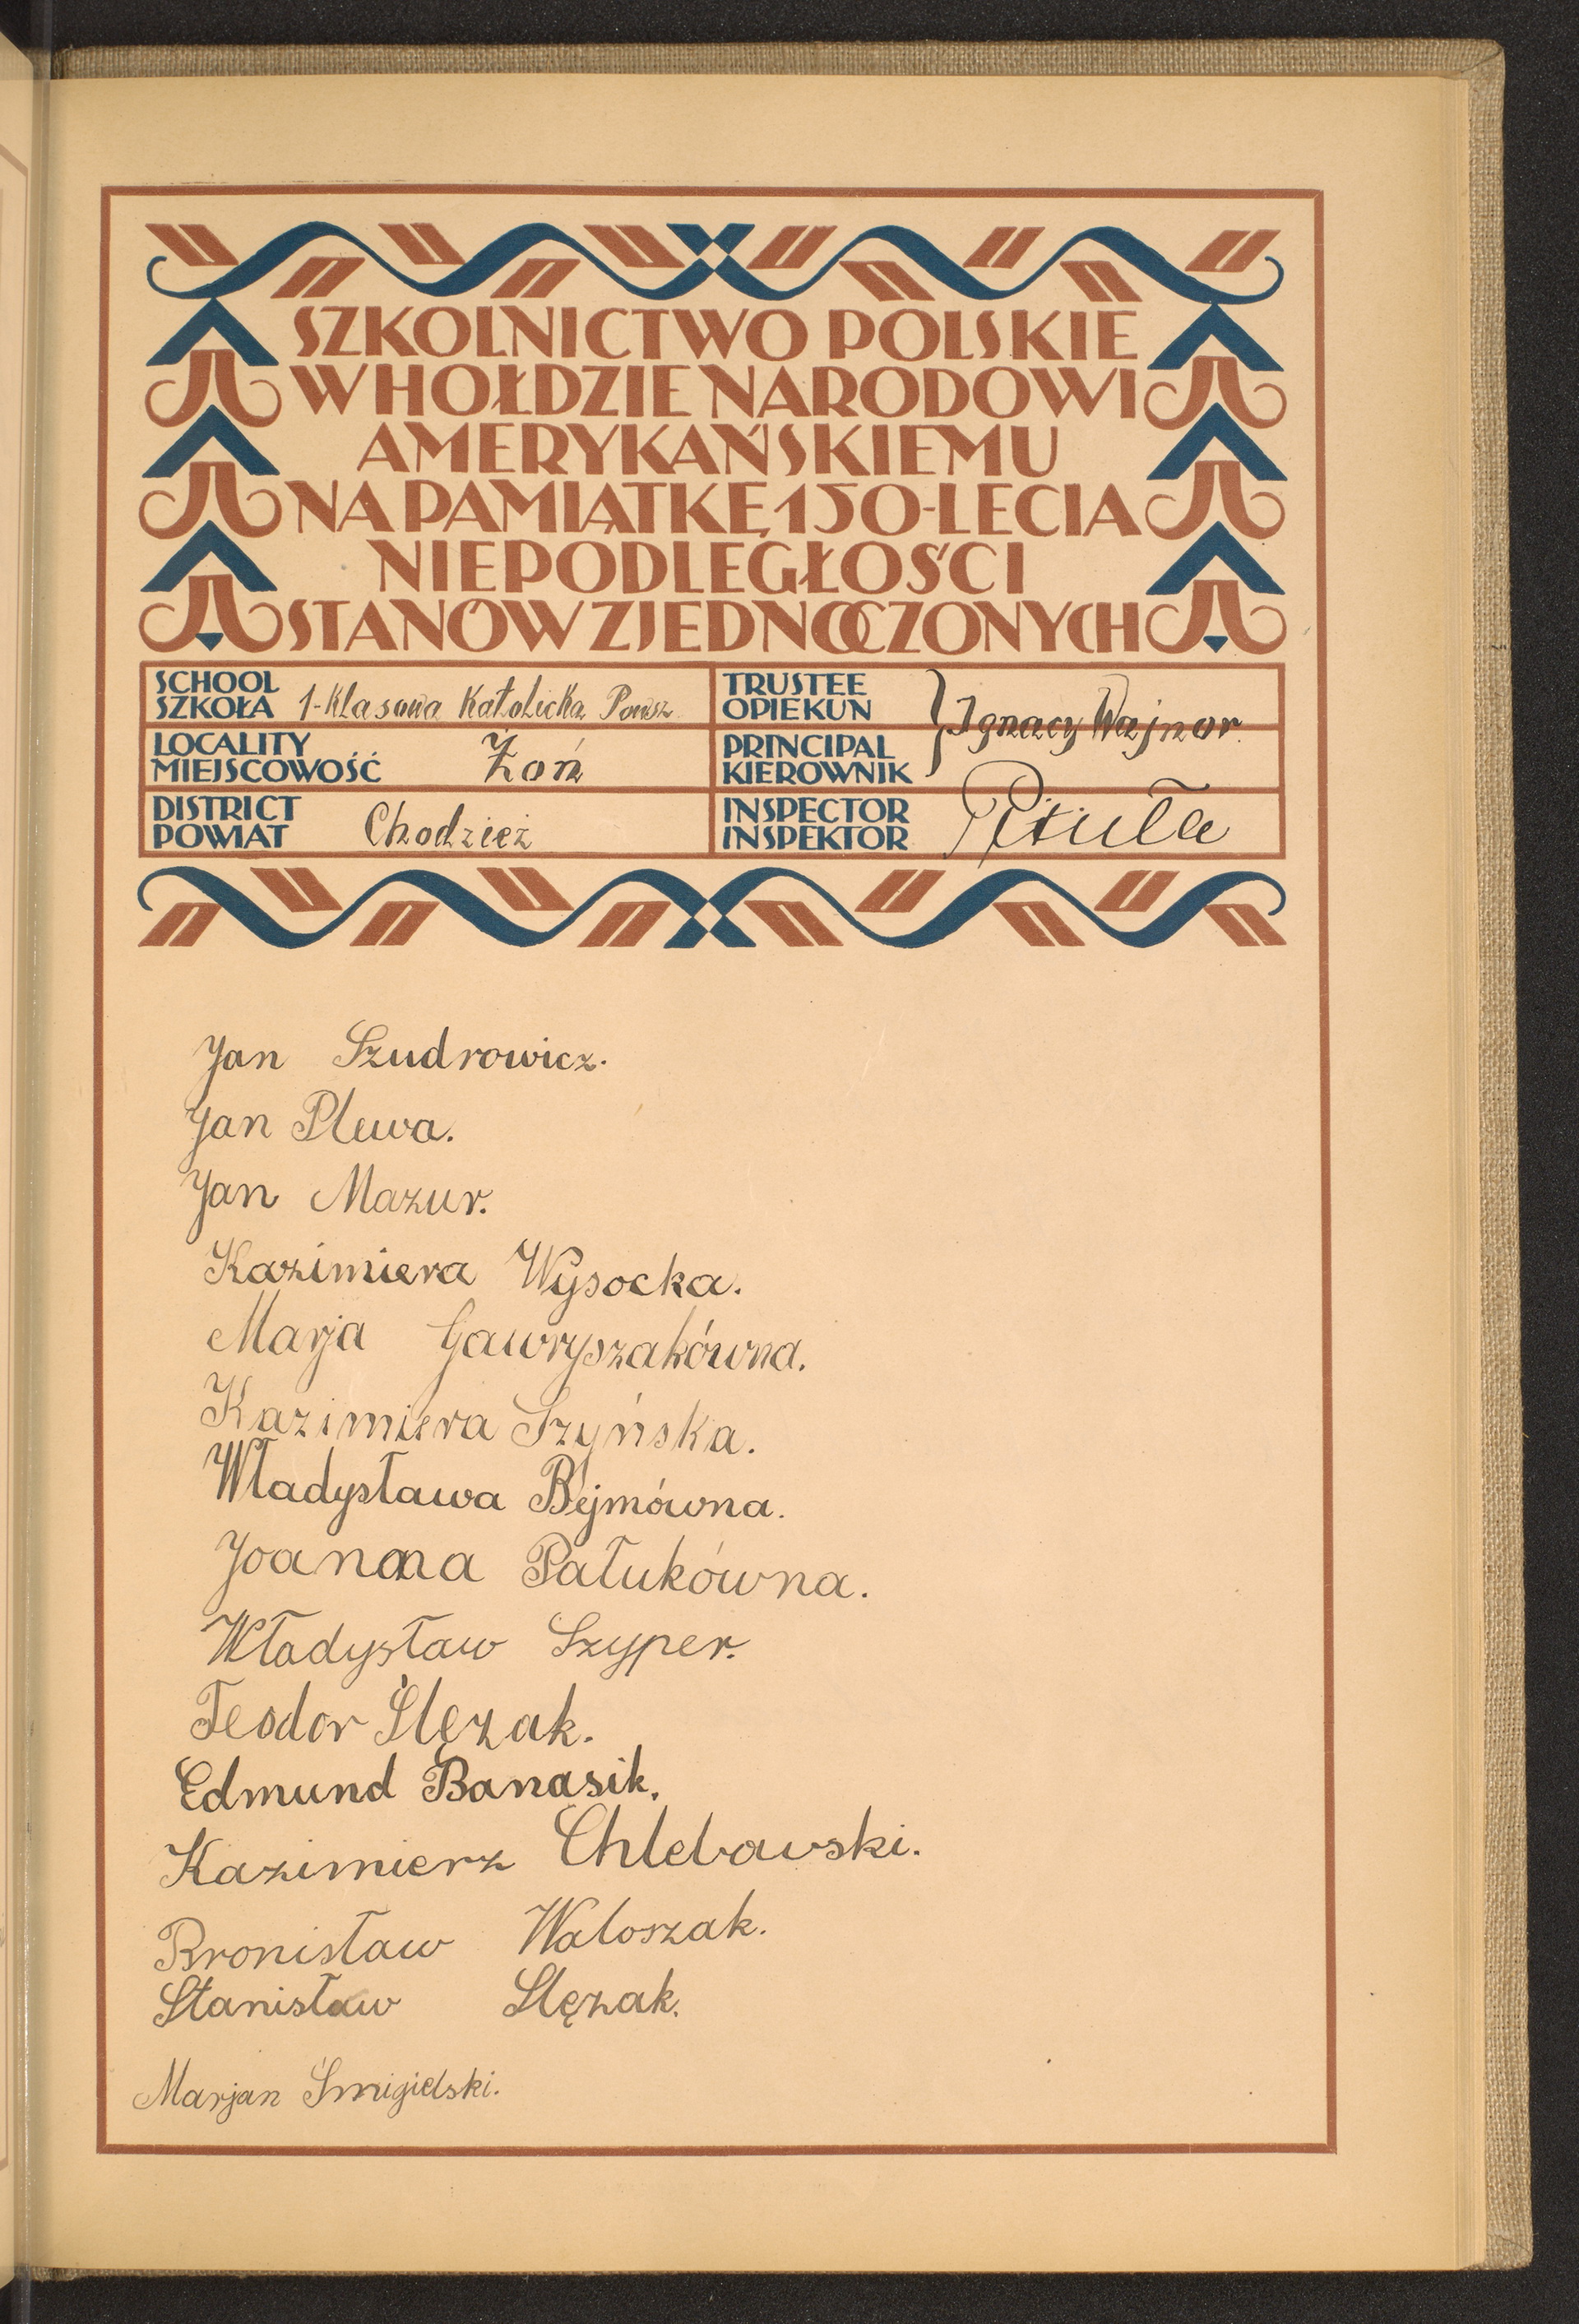 SZKOLNICTWO POLSKIE
W HOŁDZIE NARODOWI
AMERYKAŃSKIEMU
NA PAMIĄTKĘ 150-LECIA
NIEPODLEGŁOŚCI
STANÓW ZJEDNOCZONYCH
SCHOOL
SZKOŁA 1-klasowa Katolicka Powsz
TRUSTEE
OPIEKUN
Ignacy Wajnor.
LOCALITY
MIEJSCOWOŚĆ Żoń
PRINCIPAL
KIEROWNIK
DISTRICT
POWIAT Chodzież
INSPECTOR
INSPEKTOR Pituła
Jan Szudrowicz.
Jan Plewa.
Jan Mazur.
Kazimiera Wysocka.
Marja Gawryszakówna.
Kazimiera Szyńska.
Władysława Bejmówna.
Joanna Pałukówna.
Władysław Szyper.
Teodor Ślęzak.
Edmund Banasik.
Kazimierz Chlebowski.
Bronisław Waloszak.
Stanisław Ślęzak.
Marjan Śmigielski.